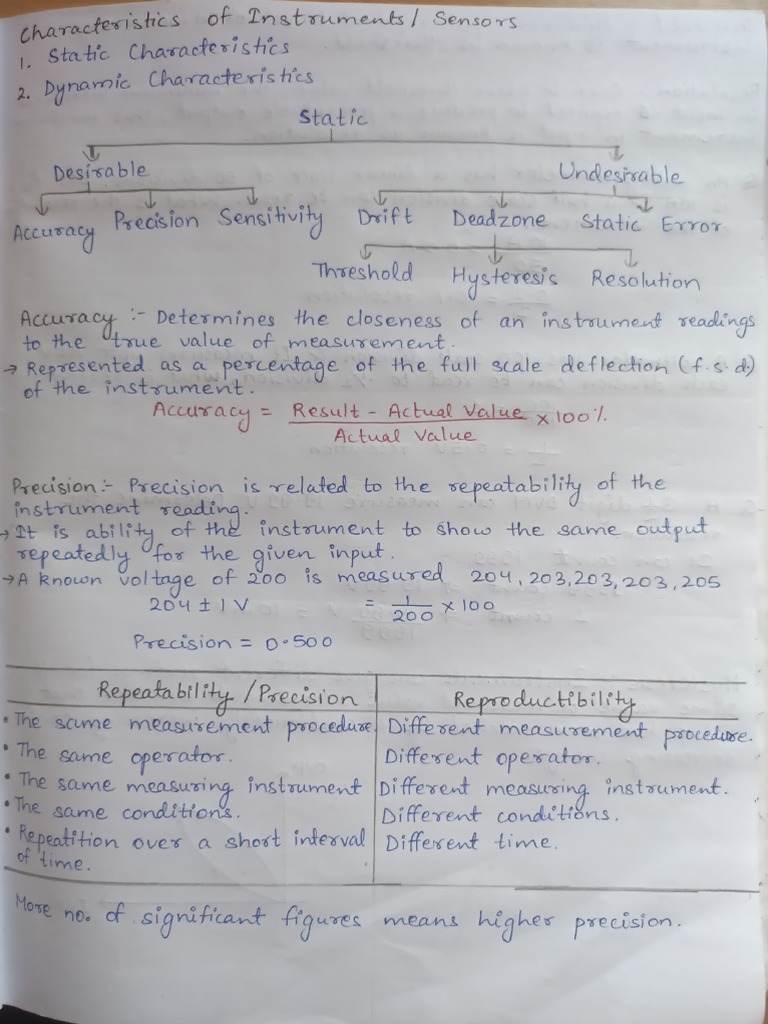 Characteristics of Instruments/ Sensors
1. Static Characteristics
2. Dynamic Characteristics
Static
Desirable Undesirable
Accuracy Precision Sensitivity Drift Deadzone Static Error
Threshold Hysteresis Resolution
Accuracy :- Determines the closeness of an instrument readings
to the true value of measurement.
→ Represented as a percentage of the full scale deflection (f.s.d.)
of the instrument.
Accuracy = Result - Actual Value × 100%
Actual Value
Precision:- Precision is related to the repeatability of the
instrument reading.
→ It is ability of the instrument to show the same output
repeatedly for the given input.
→ A known voltage of 200 is measured 204, 203, 203, 203, 205
204 ± 1 V = 1/200 × 100
Precision = 0.500
Repeatability / Precision Reproductibility
• The same measurement procedure Different measurement procedure.
• The same operator. Different operator.
• The same measuring instrument Different measuring instrument.
• The same conditions. Different conditions.
• Repeatition over a short interval Different time.
of time.
More no. of significant figures means higher precision.